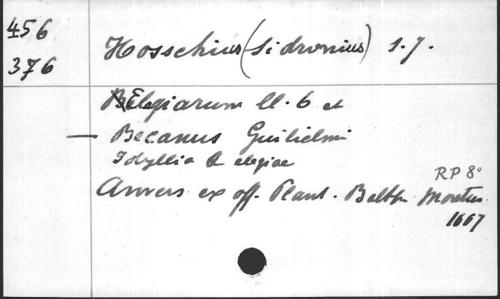 456
376
Hosschius (Sidronius) s.j.
Elegiarum ll. 6 et
— Becanus Guilielmi
Idyllia & elegiae
RP 8°
Anvers ex off. Plant. Balth. Moretus
1667